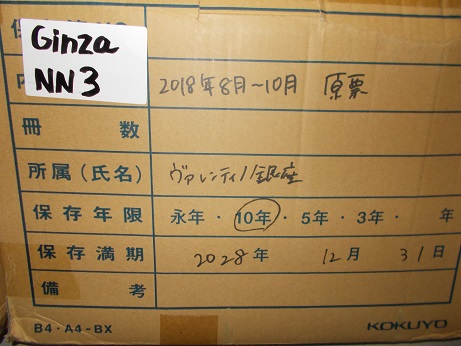 Ginza
NN3
2018年8月~10月 原票
冊数
所属(氏名) ヴァレンティノ銀座
保存年限 永年・10年・5年・3年・ 年
保存満期 2028年 12月 31日
備考
B4・A4-BX KOKUYO